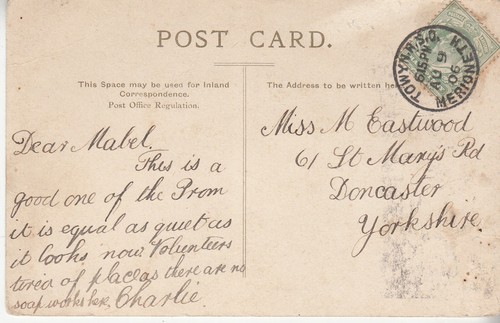 POST CARD.
This Space may be used for Inland
Correspondence.
Post Office Regulation.
The Address to be written he
TOWYN.R.S.O.
6.45PM
AU 9
06
MERIONETH
Dear Mabel.
This is a
good one of the Prom
it is equal as quiet as
it looks now Volunteers
tired of place as there are no
soap works here, Charlie.
Miss M Eastwood
61 St Mary's Rd
Doncaster
Yorkshire.